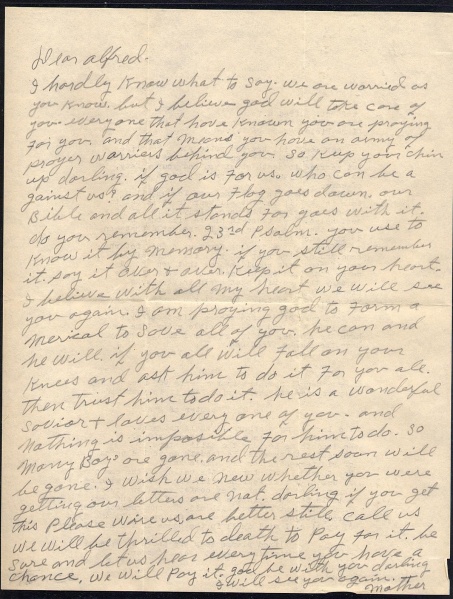 Dear alfred.
I hardly Know what to say. we are worried as
you Know. but I believe god will take care of
you. every one that have Known you are praying
For you. and that means you have an army of
prayer warriers behind you. So Keep your chin
up darling. if god is For us. who can be a
gainst us? and if our Flag goes down. our
Bible and all it stands For goes with it.
do you remember. 23rd Psalm. you use to
Know it by memory. if you still remember
it. say it over + over. Keep it on your heart.
I believe with all my heart we will see
you again. I am praying god to Form a
merical to save all of you. he can and
he will. if you all will Fall on your
Knees and ask him to do it For you all.
then trust him to do it. he is a wonderful
Savior + loves every one of you. and
nothing is impossible For him to do. So
many Boys are gone. and the rest soon will
be gone. I wish we new whether you were
getting our letters are not. darling if you get
this Please wire us, are better still, call us
we will be thrilled to death to Pay For it. be
sure and let us hear every time you have a
chance, we will Pay it. god be with you darling
I will see you again.
Mother